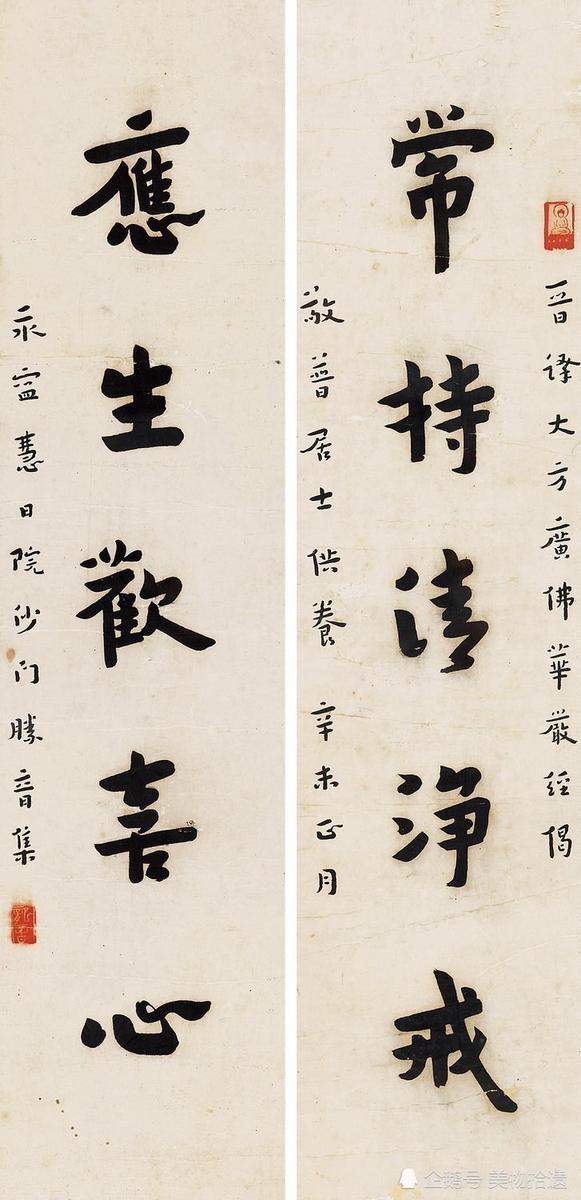 晉譯大方廣佛華嚴經偈
常持清淨戒
敬普居士供養 辛未正月
應生歡喜心
永寧慧日院沙門勝音集
企鹅号 美物拾遗